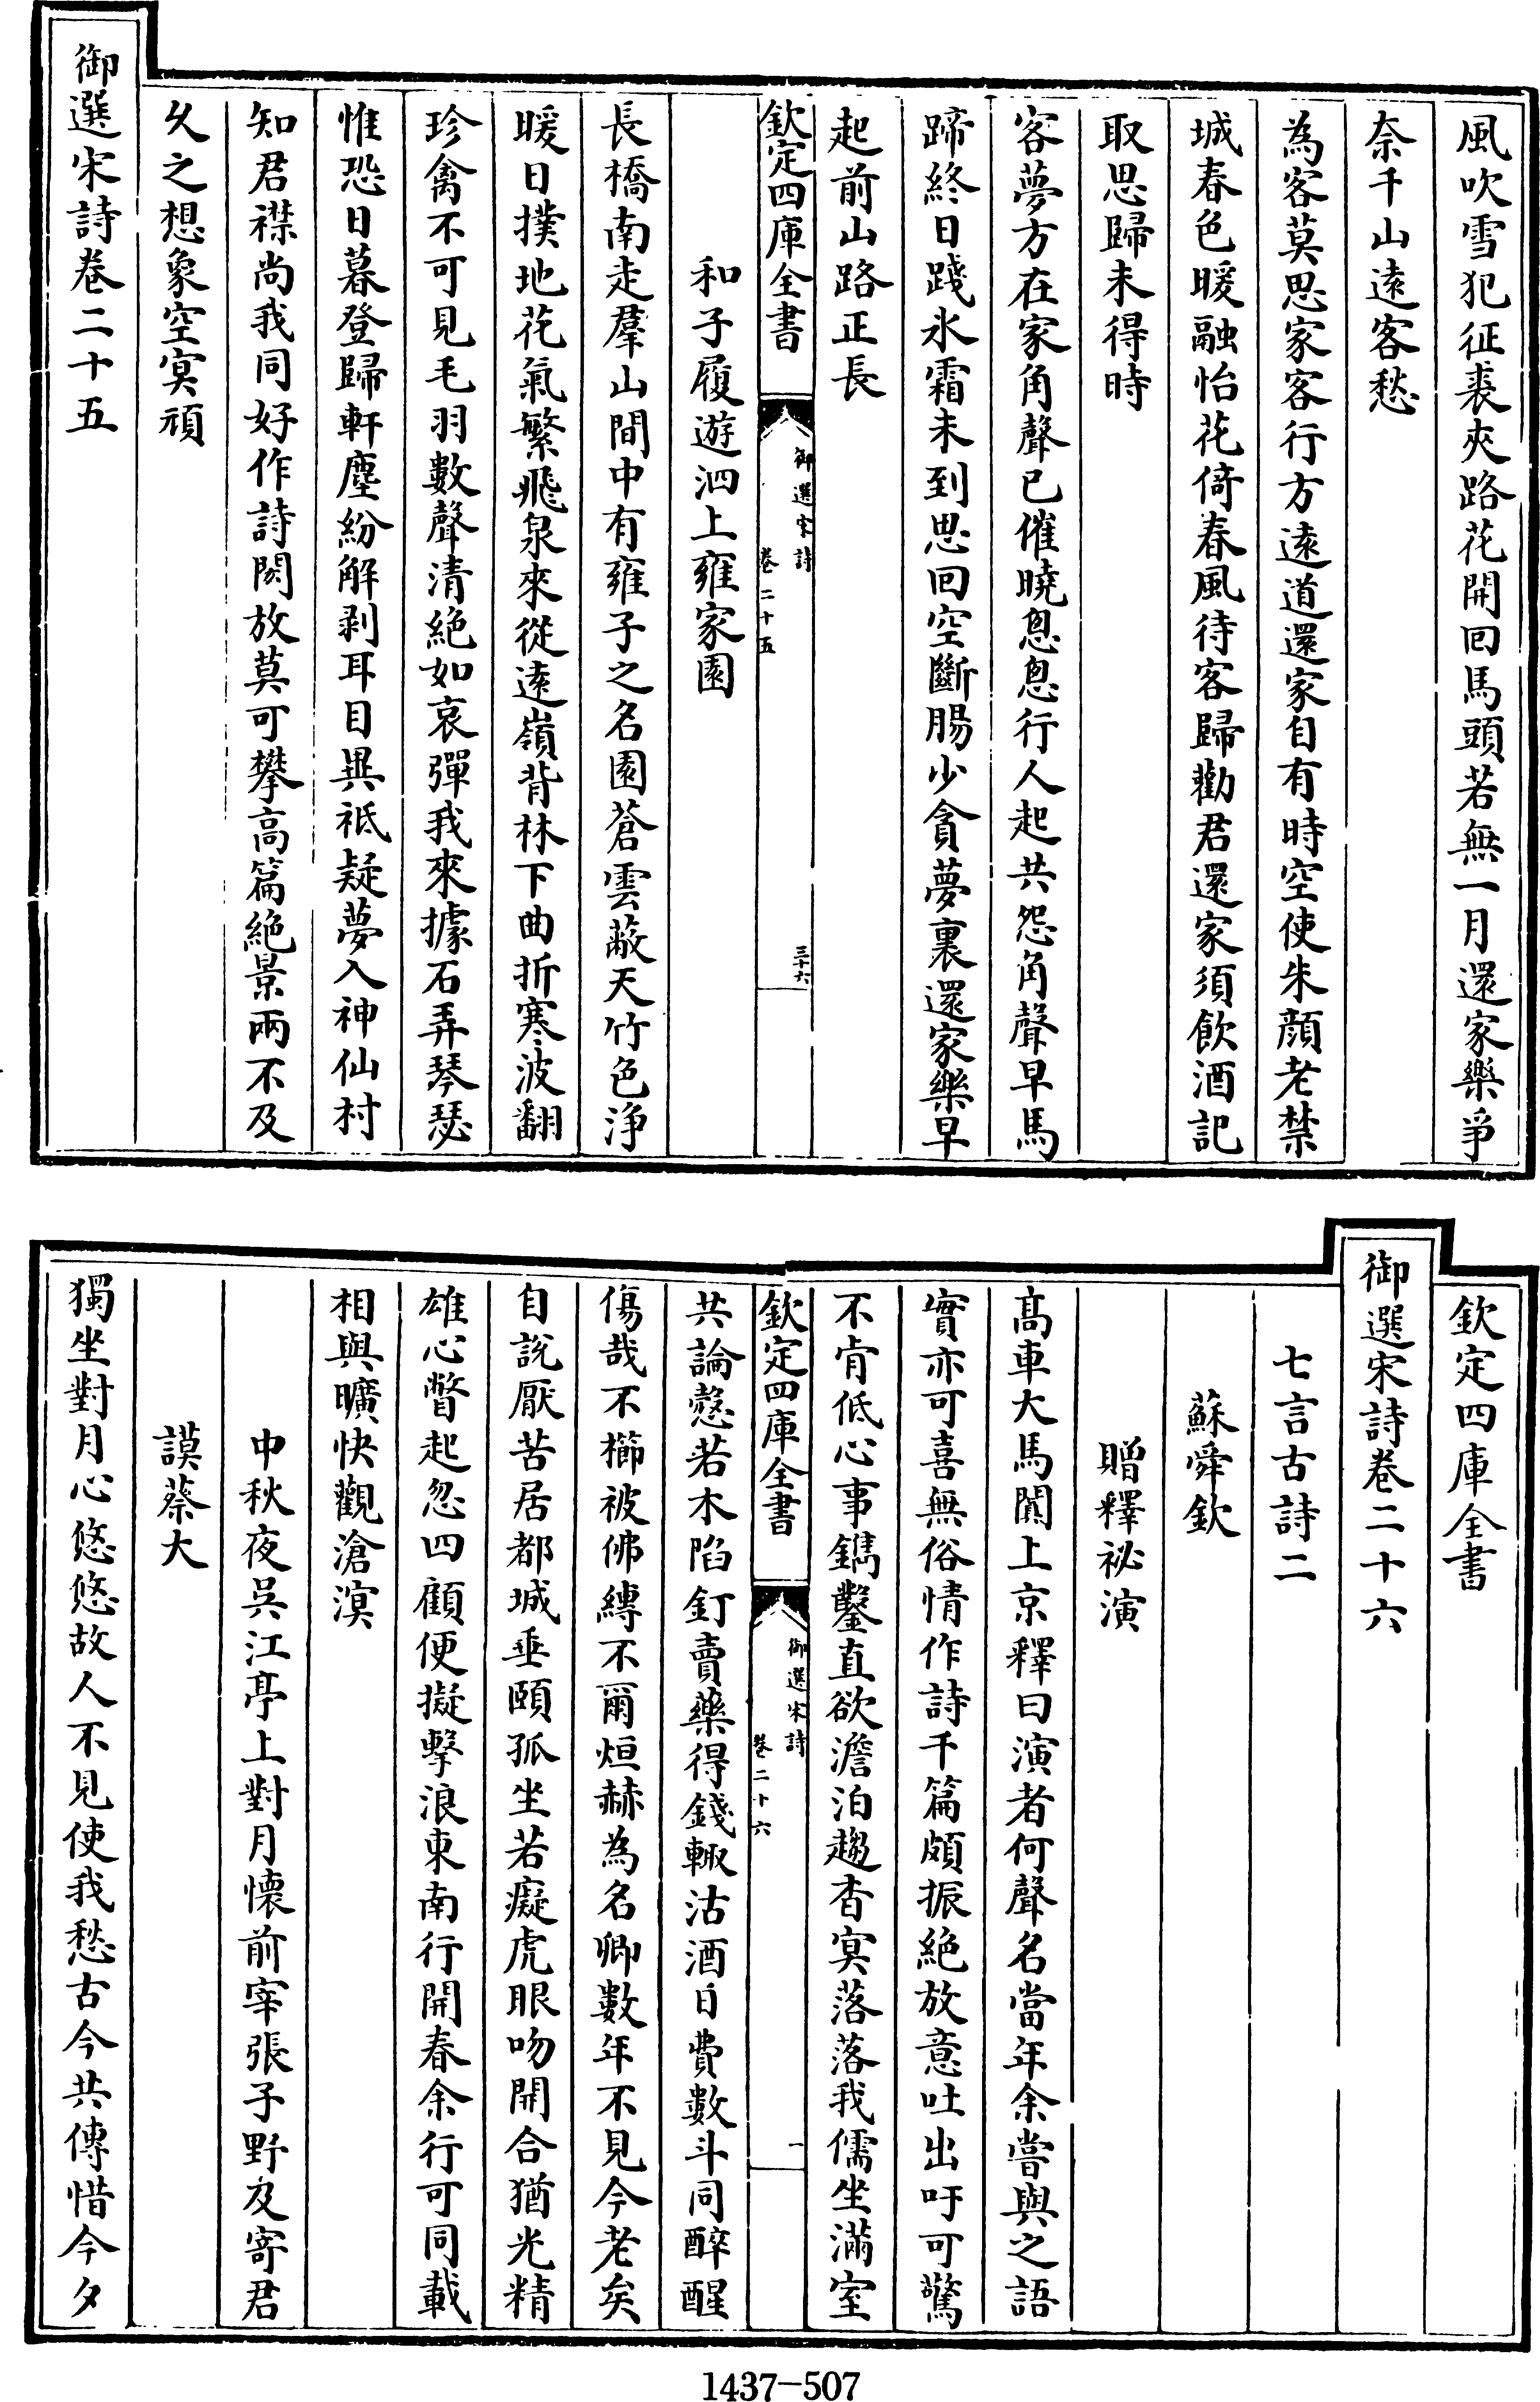 風吹雪犯征裘夾路花開回馬頭若無一月還家樂爭
奈千山遠客愁
為客莫思家客行方遠道還家自有時空使朱顔老禁
城春色暖融怡花倚春風待客歸勸君還家須飲酒記
取思歸未得時
客夢方在家角聲已催曉怱怱行人起共怨角聲早馬
蹄終日踐氷霜未到思回空斷腸少貪夢裏還家樂早
起前山路正長
欽定四庫全書
御選宋詩
卷二十五
三十六
和子履遊泗上雍家園
長橋南走羣山間中有雍子之名園蒼雲蔽天竹色浄
暖日撲地花氣繁飛泉來從遠嶺背林下曲折寒波翻
珍禽不可見毛羽數聲清絶如哀彈我來據石弄琴瑟
惟恐日暮登歸軒塵紛解剥耳目異祗疑夢入神仙村
知君襟尚我同好作詩閎放莫可攀高篇絶景兩不及
乆之想象空冥頑
御選宋詩卷二十五
欽定四庫全書
御選宋詩卷二十六
七言古詩二
蘇舜欽
贈釋祕演
髙車大馬闐上京釋曰演者何聲名當年余嘗與之語
實亦可喜無俗情作詩千篇頗振絶放意吐出吁可驚
不肯低心事鐫鑿直欲澹泊趨杳冥落落我儒坐滿室
欽定四庫全書
御選宋詩
卷二十六
一
共論慤若木陷釘賣藥得錢輙沽酒日費數斗同醉醒
傷哉不櫛被佛縛不爾烜赫為名卿數年不見今老矣
自說厭苦居都城垂頤孤坐若癡虎眼吻開合猶光精
雄心瞥起忽四顧便擬擊浪東南行開春余行可同載
相與曠快觀滄溟
中秋夜吳江亭上對月懷前宰張子野及寄君
謨蔡大
獨坐對月心悠悠故人不見使我愁古今共傳惜今夕
1437-507